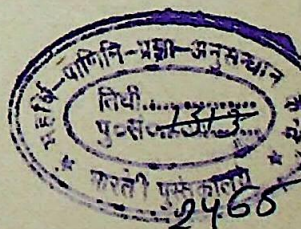 महर्षि-पाणिनि-प्रज्ञा-अनुसन्धान
तिथी..............
पु॰सं॰......1313
पुस्तकालय
2466